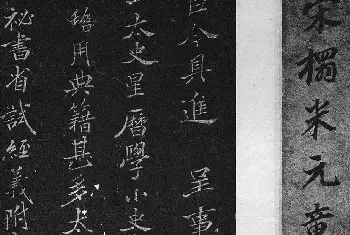 宋搨米元章
令具進 呈事
太史星曆學小史
用典籍甚多太
祕書省試經義附